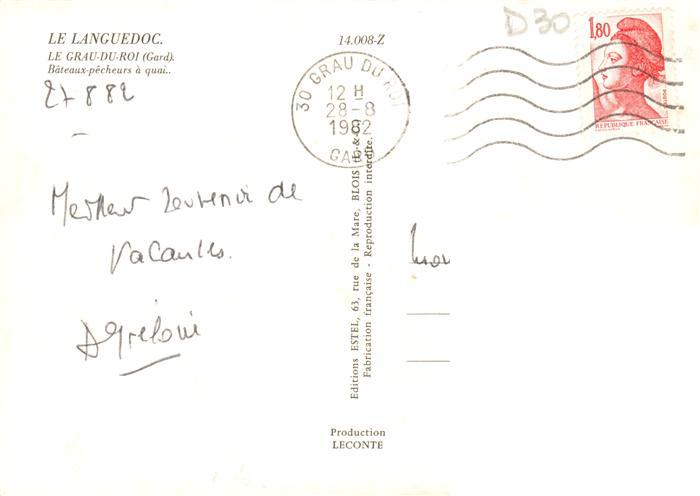 LE LANGUEDOC.
LE GRAU-DU-ROI (Gard).
Bâteaux-pêcheurs à quai..
27 8 82
Meilleur souvenir de
vacances.
14.008-Z
30 GRAU DU ROI
12 H
28-8
1982
GARD
D30
1,80
REPUBLIQUE FRANÇAISE
Editions ESTEL, 63, rue de la Mare, BLOIS (L-&-C)
Fabrication française - Reproduction interdite.
Production
LECONTE